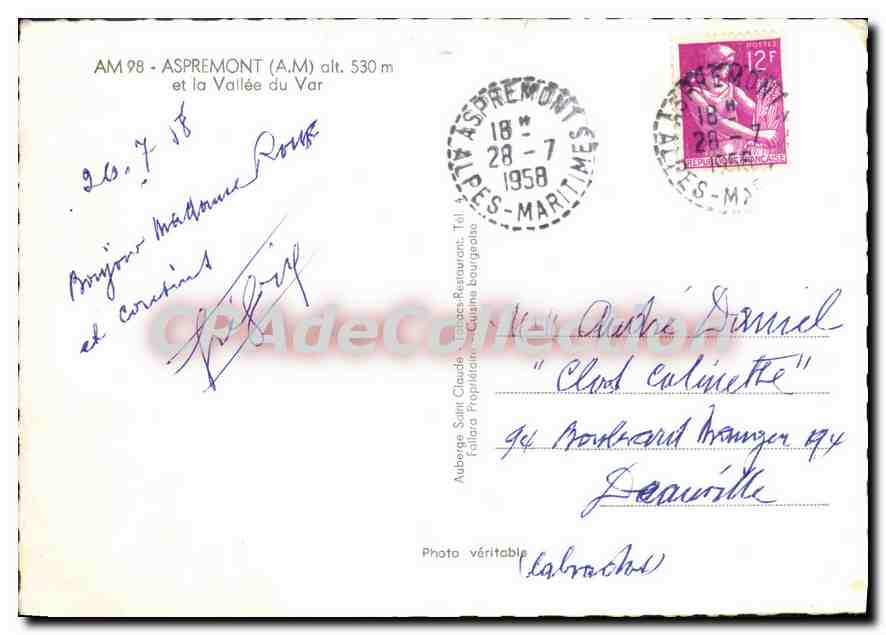 AM 98 - ASPREMONT (A.M) alt. 530 m
et la Vallée du Var
26.7.58
Bonjour Madame Roux
et
ASPREMONT
18H
28 - 7
1958
ALPES-MARITIMES
POSTES
12F
REPUBLIQUE FRANÇAISE
ASPREMONT
18H
28 - 7
1958
ALPES-MA
CPAdeCollection
Auberge Saint Claude - Tabacs-Restaurant. Tél. 4
Fallara Propriétaire - Cuisine bourgeoise
André Daniel
"Clos Colinette"
94 Boulevard 194
Deauville
(Calvados)
Photo véritable